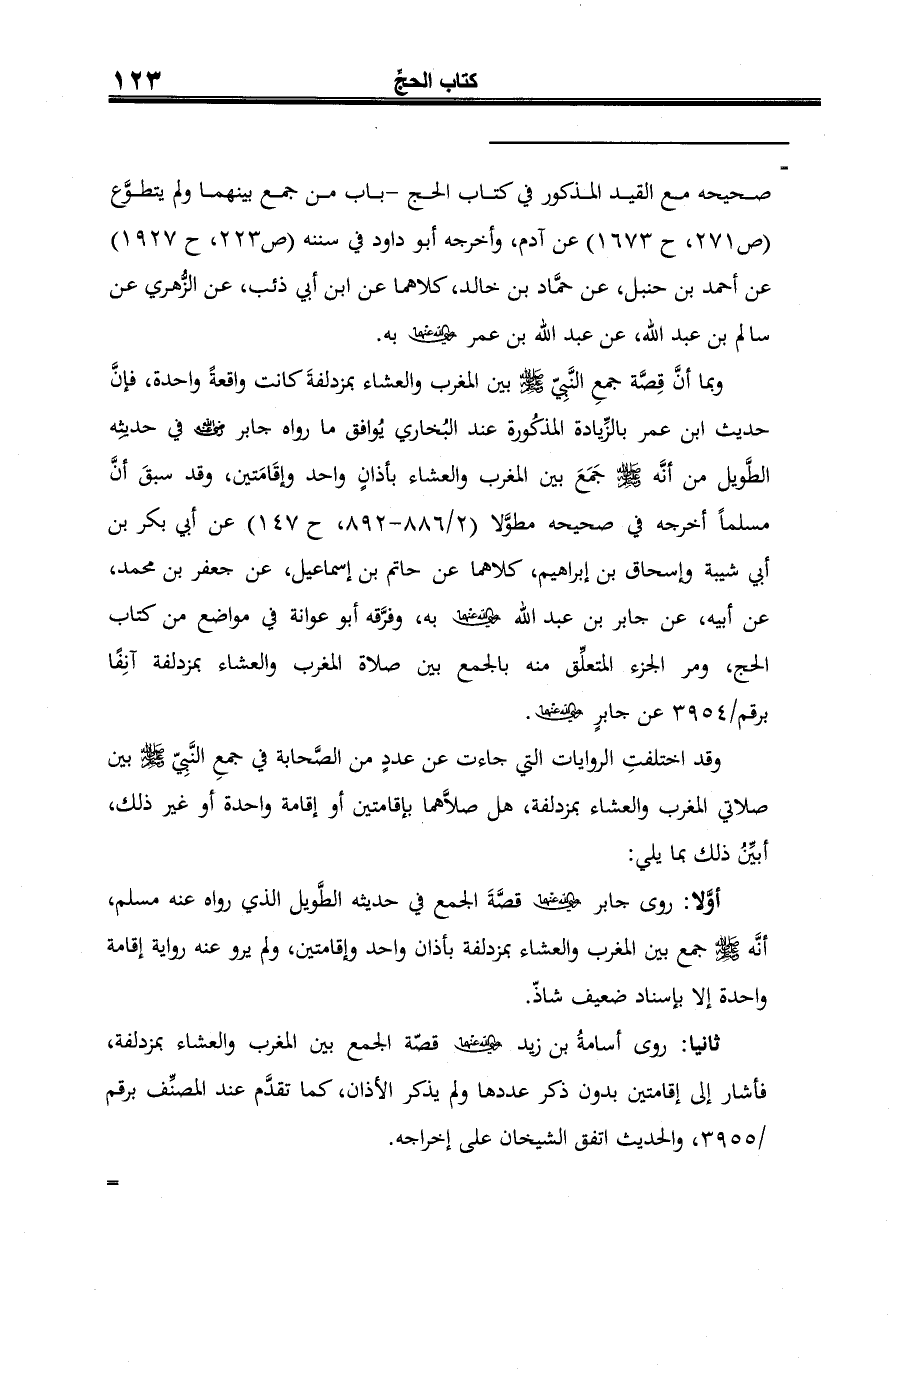 كتاب الحجّ ١٢٣
=
صحيحه مع القيد المذكور في كتاب الحج -باب من جمع بينهما ولم يتطوَّع
(ص٢٧١، ح ١٦٧٣) عن آدم، وأخرجه أبو داود في سننه (ص٢٢٣، ح ١٩٢٧)
عن أحمد بن حنبل، عن حمَّاد بن خالد، كلاهما عن ابن أبي ذئب، عن الزُّهري عن
سالم بن عبد الله، عن عبد الله بن عمر رضي الله عنهما به.
وبما أنَّ قِصَّة جمعِ النَّبيّ ﷺ بين المغرب والعشاء بمزدلفةَ كانت واقعةً واحدة، فإنَّ
حديث ابن عمر بالزِّيادة المذكُورة عند البُخاري يُوافق ما رواه جابر رضي الله عنه في حديثِه
الطَّويل من أنَّه ﷺ جَمَعَ بين المغرب والعشاء بأذانٍ واحد وإقَامَتين، وقد سبقَ أنَّ
مسلماً أخرجه في صحيحه مطوَّلا (٨٨٦/٢-٨٩٢، ح ١٤٧) عن أبي بكر بن
أبي شيبة وإسحاق بن إبراهيم، كلاهما عن حاتم بن إسماعيل، عن جعفر بن محمد،
عن أبيه، عن جابر بن عبد الله رضي الله عنهما به، وفرَّقه أبو عوانة في مواضع من كتاب
الحج، ومر الجزء المتعلِّق منه بالجمع بين صلاة المغرب والعشاء بمزدلفة آنِفًا
برقم/٣٩٥٤ عن جابرٍ رضي الله عنهما.
وقد اختلفتِ الروايات التي جاءت عن عددٍ من الصَّحابة في جمعِ النَّبيّ ﷺ بين
صلاتي المغرب والعشاء بمزدلفة، هل صلاَّهما بإقامتين أو إقامة واحدة أو غير ذلك،
أبيِّنُ ذلك بما يلي:
أوَّلا: روى جابر رضي الله عنهما قصَّةَ الجمع في حديثه الطَّويل الذي رواه عنه مسلم،
أنَّه ﷺ جمع بين المغرب والعشاء بمزدلفة بأذان واحد وإقامتين، ولم يرو عنه رواية إقامة
واحدة إلا بإسناد ضعيف شاذّ.
ثانيا: روى أسامةُ بن زيد رضي الله عنهما قصّة الجمع بين المغرب والعشاء بمزدلفة،
فأشار إلى إقامتين بدون ذكر عددها ولم يذكر الأذان، كما تقدَّم عند المصنِّف برقم
/٣٩٥٥، والحديث اتفق الشيخان على إخراجه.
=